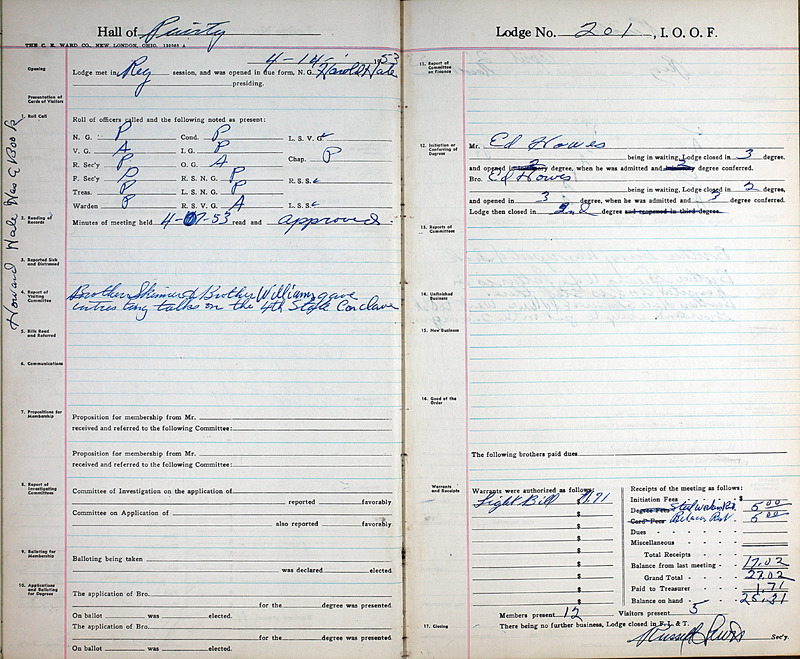 Hall of Purity
THE C. E. WARD CO. NEW LONDON, OHIO.
4-14- 1953
Opening
Lodge met in Reg session, and was opened in due form, N. G. Harold Hale
presiding.
Presentation of Cards of Visitors
1. Roll Call
Roll of officers called and the following noted as present:
N. G. P Cond. P L. S. V. G.
V. G. A I. G. P
R. Sec'y P O. G. A Chap. P
F. Sec'y P R. S. N. G. P R. S. S.
Treas. P L. S. N. G. P
Warden P R. S. V. G. A L. S. S.
2. Reading of Records
Minutes of meeting held 4-7-53 read and approved
3. Reported Sick and Distressed
4. Report of Visiting Committee
Brother Skinner & Brother Williams gave
intresting talks on the 4th State Conclave
5. Bills Read and Referred
6. Communications
7. Propositions for Membership
Proposition for membership from Mr.
received and referred to the following Committee:
Proposition for membership from Mr.
received and referred to the following Committee:
8. Report of Investigating Committees
Committee of Investigation on the application of
reported favorably
Committee on Application of
also reported favorably
9. Balloting for Membership
Balloting being taken
was declared elected.
10. Applications and Balloting for Degrees
The application of Bro.
for the degree was presented
On ballot was elected.
The application of Bro.
for the degree was presented
On ballot was elected.
Howard Hale Was a Visitor
Lodge No. 201, I. O. O. F.
11. Report of Committee on Finance
12. Initiation or Conferring of Degrees
Mr. Ed Howes
being in waiting, Lodge closed in 3 degree.
and opened in 2 degree, when he was admitted and 2 degree conferred.
Bro. Ed Howes
being in waiting, Lodge closed in 2 degree,
and opened in 3 degree, when he was admitted and 3 degree conferred.
Lodge then closed in 2nd degree and reopened in third degree.
13. Reports of Committees
14. Unfinished Business
15. New Business
16. Good of the Order
The following brothers paid dues
Warrants and Receipts
Warrants were authorized as follows:
Light Bill $1.71
$
$
$
$
$
$
$
Receipts of the meeting as follows:
Initiation Fees $
Degree Fees 5 00
Card Fees 5 00
Dues
Miscellaneous
Total Receipts
Balance from last meeting 17.02
Grand Total 27.02
Paid to Treasurer 1.71
Balance on hand 25.31
Members present 12 Visitors present 5
17. Closing
There being no further business, Lodge closed in F. L. & T.
Sec'y.